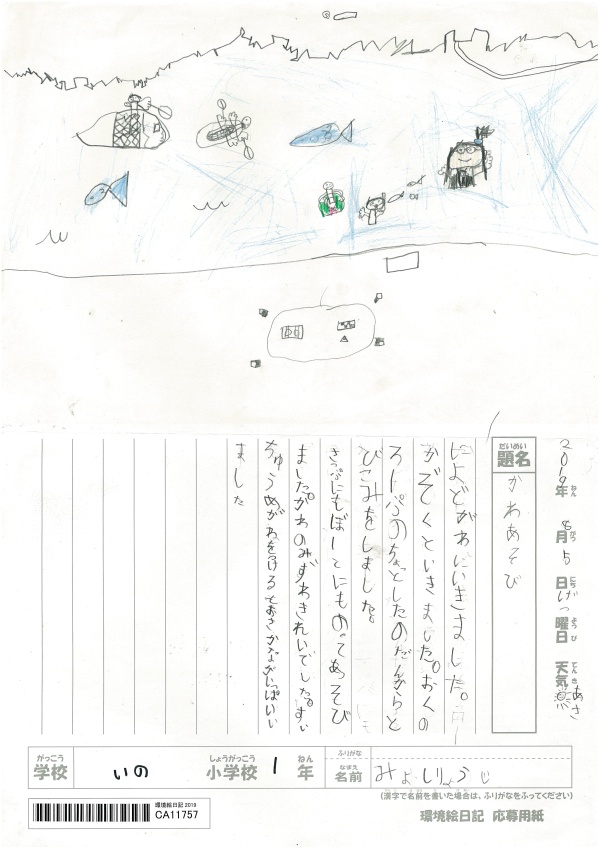 2019年 ねん 8月 がつ 5日 にち げつ曜日 ようび 天気 てんき あさ
だいめい
題名
かわあそび
によどがわにいきました。
かぞくといきました。おくの
ろーぷのちょっとしたのだんからと
びこみをしました。
さっぷにもぼーとにものってあそび
ました。かわのみずわきれいでした。すい
ちゅうめがねをつけるとおさかながいっぱいい
ました
がっこう しょうがっこう ねん ふりがな
学校 いの 小学校 1年 なまえ 名前 みよしりょうじ
(漢字で名前を書いた場合は、ふりがなをふってください)
環境絵日記 応募用紙
環境絵日記 2019
CA11757